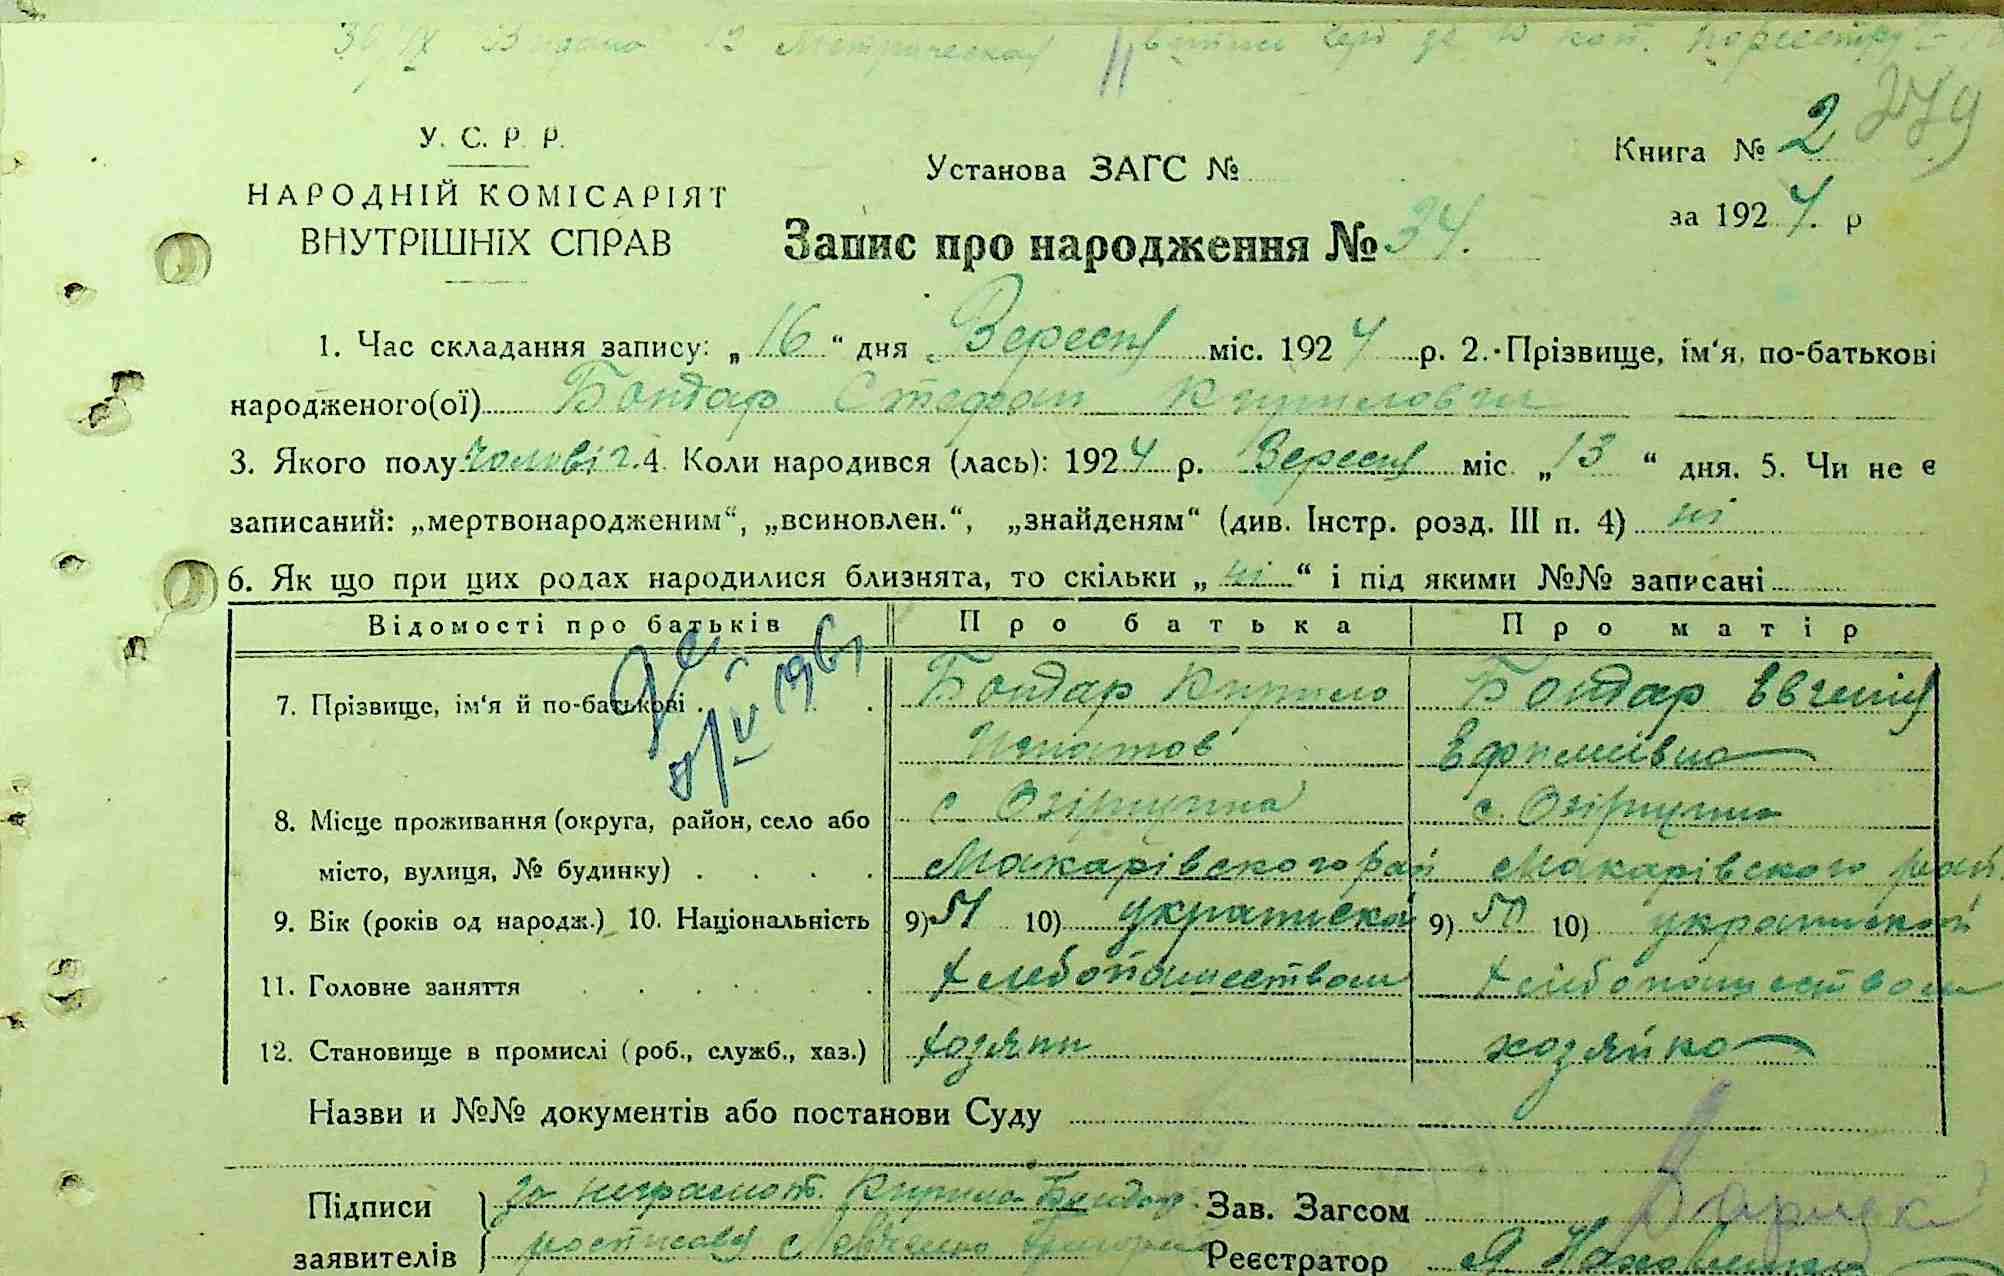 279
У. С. Р. Р.
НАРОДНІЙ КОМІСАРІЯТ
ВНУТРІШНІХ СПРАВ
Установа ЗАГС №
Книга № 2
за 1924. р
Запис про народження № 34.
1. Час складання запису: „16“ дня Вересня міс. 1924 р. 2. Прізвище, ім'я, по-батькові
народженого(ої) Бондар Стефан Кирилович
3. Якого полу чоловіч. 4. Коли народився (лась): 1924 р. Вересня міс. „13“ дня. 5. Чи не є
записаний: „мертвонародженим“, „всиновлен.“, „знайденям“ (див. Інстр. розд. III п. 4) ні
6. Як що при цих родах народилися близнята, то скільки „ні“ і під якими №№ записані
Відомості про батьків Про батька Про матір
7. Прізвище, ім'я й по-батькові . . Бондар Кирило Бондар Евгенія
Игнатов Ефимівна
с. Озірщина с. Озірщина
8. Місце проживання (округа, район, село або
місто, вулиця, № будинку) . . . . Макарівского рай Макарівского рай.
9. Вік (років од народж.) 10. Національність 9) 51 10) украинской 9) 50 10) украинской
11. Головне заняття . . . . . . хлебопашеством хлібопашеством
12. Становище в промислі (роб., служб., хаз.) хозяин хозяйка
Назви и №№ документів або постанови Суду
Підписи за неграмот. Кирила Бондар Зав. Загсом
заявителів Реєстратор